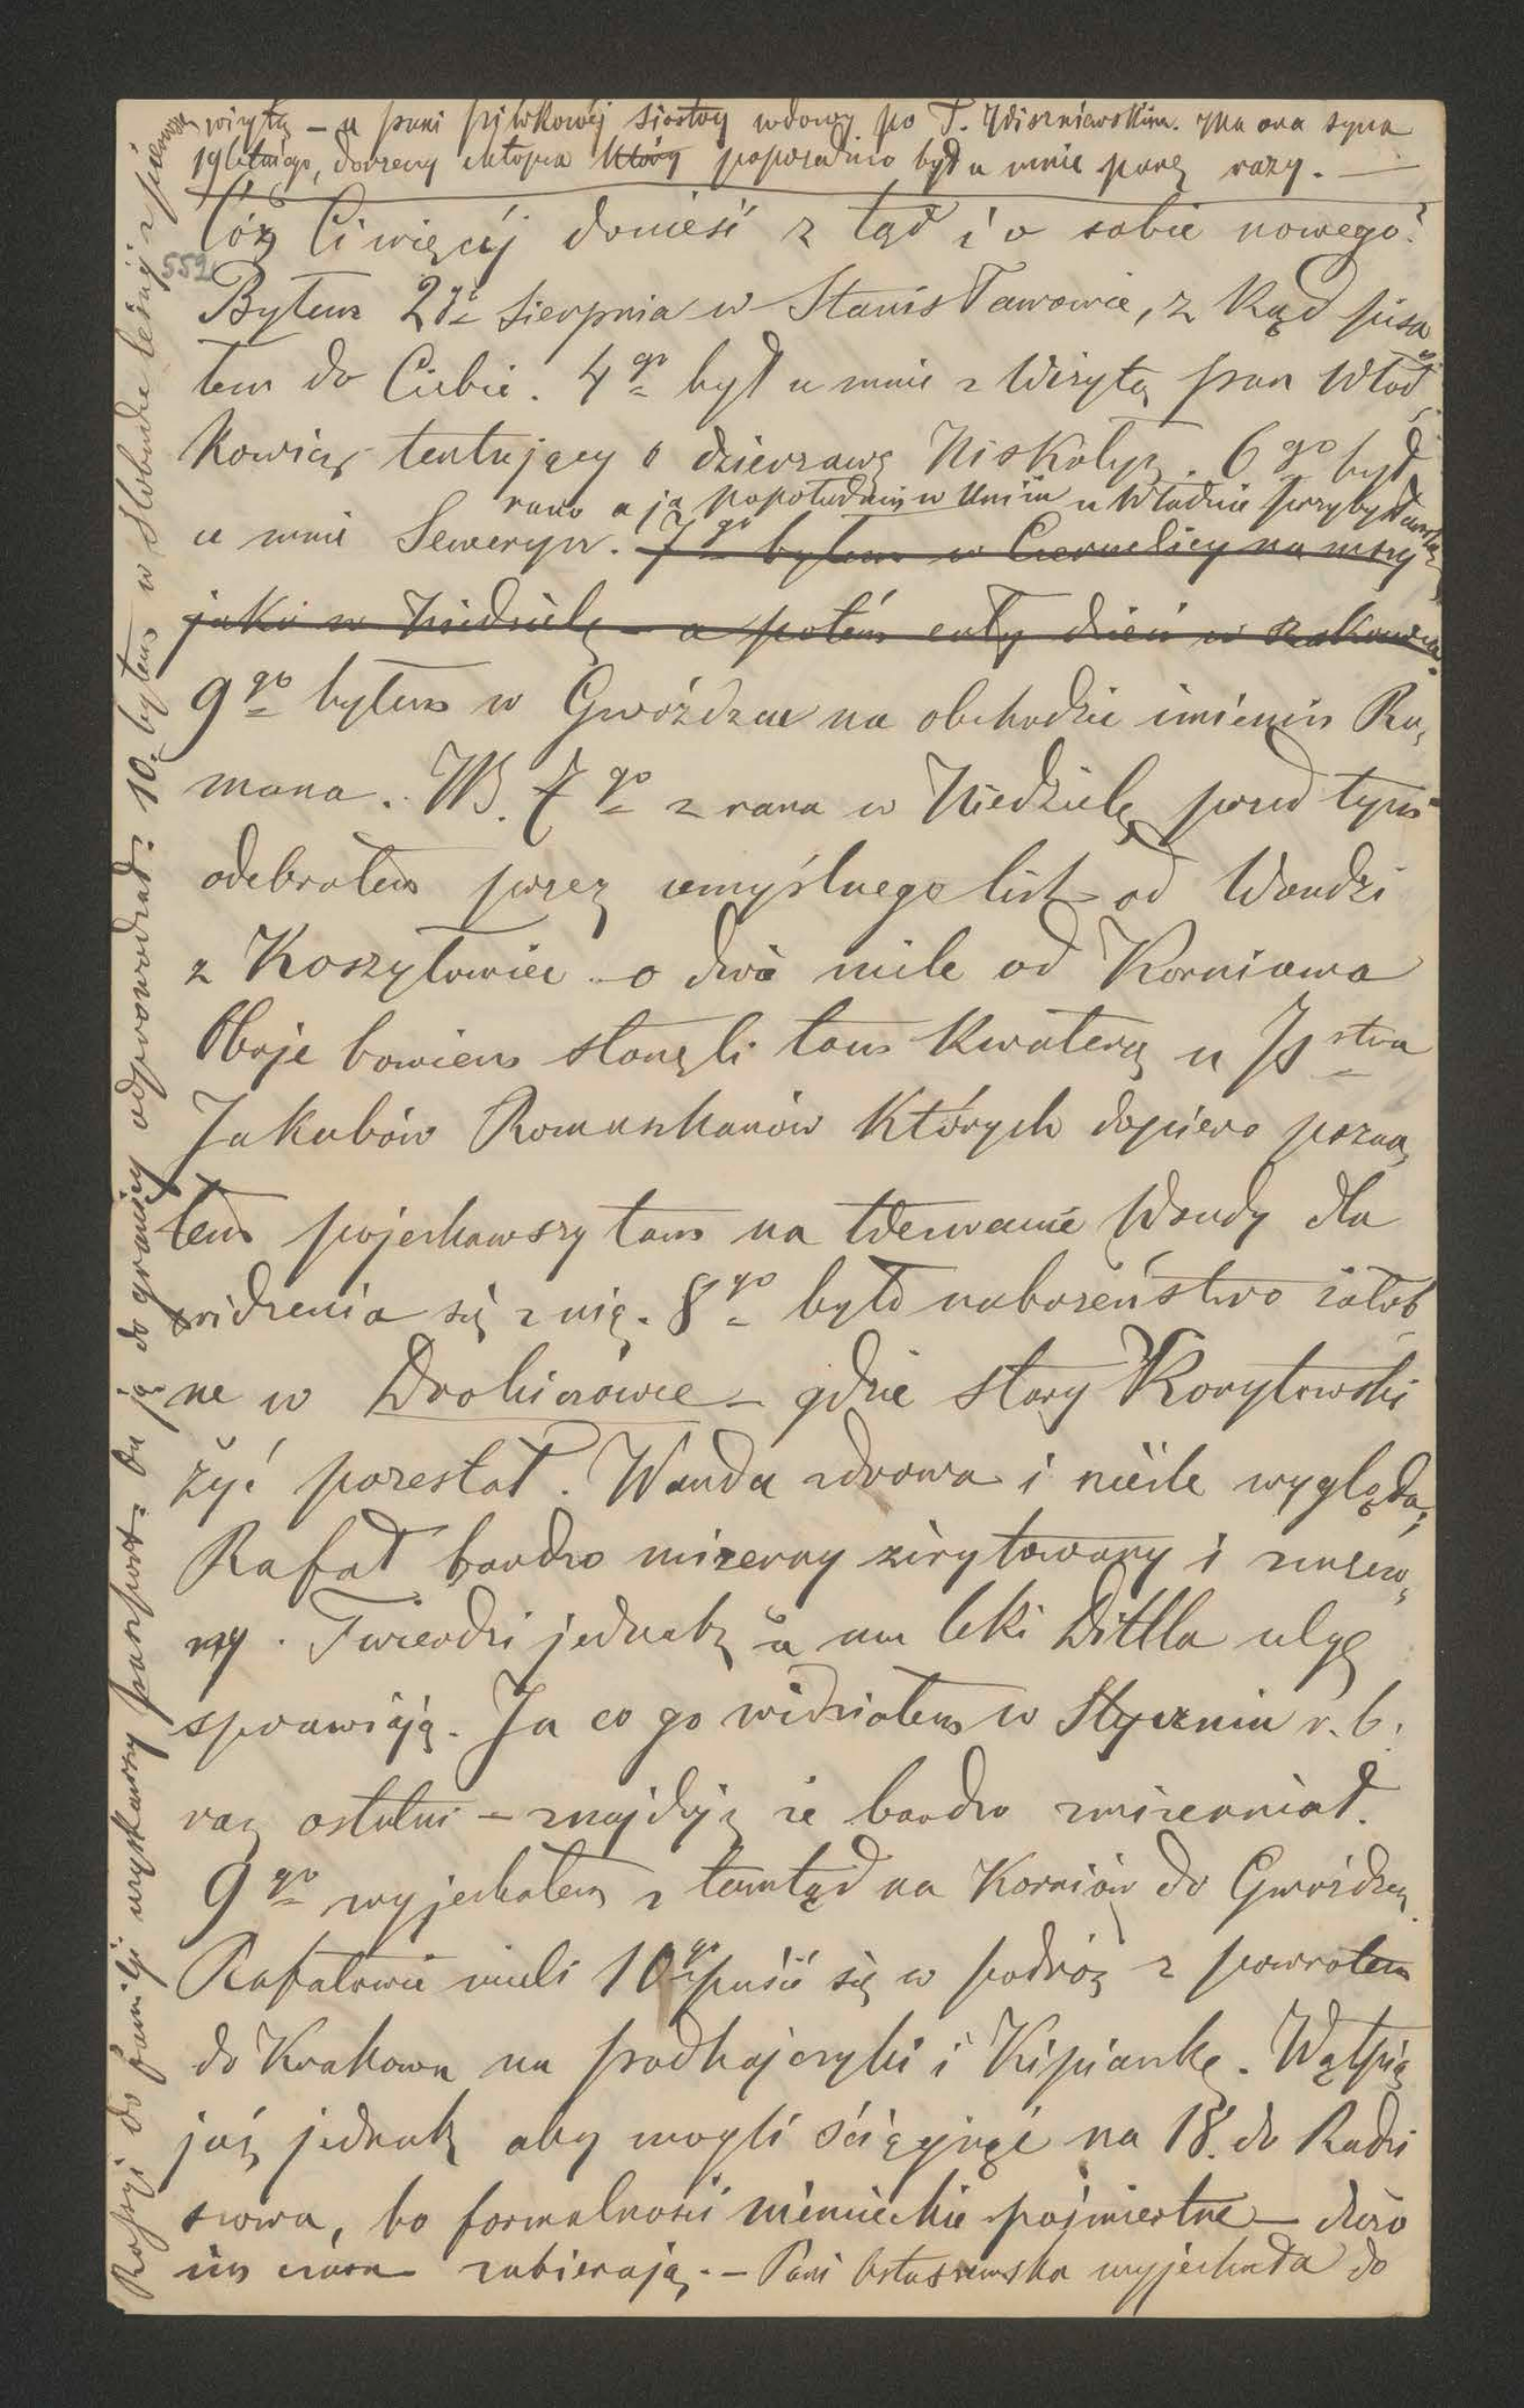 wizytą – u pani Pilwkowéj siostry wdowy po T. Wiszniewskim. Ma ona syna
19letniego, dorzeczny chłopca który poprzednio był u mnie parę razy. —
Cóż Ci więcéj donieść z tąd i o sobie nowego?
552
Byłem 2go Sierpnia w Stanisławowie, z kąd pisa
łem do Ciebie. 4go był u mnie z wizytą pan Wład
kowicz tentujący o dzierzawę Niskołyz. 6go był
rano a ja popołudniu w Uniżu u Władzia Przybysławski
u mnie Seweryn. 7go byłem w Czernelicy na mszy
jako w Niedzielę – a potém cały dzień w Rakowcu.
9go byłem w Gwóźdzcu na obchodzie imienin Ro,
mana. NB. 7go z rana w Niedzielę przed tym
odebrałem przez umyślnego list od Wandzi
z Koszyłowiec – o dwie mile od Korniowa
Oboje bowiem stanęli tam kwaterą u Pstwa
Jakubów Romaszkanów których dopiero pozna,
łem pojechawszy tam na wezwanie Wandy dla
widzenia się z nią. 8go było nabożeństwo żałob
ne w Drohiczówce – gdzie stary Korytowski
żyć przestał. Wanda zdrowa i nieźle wygląda;
Rafał bardzo mizerny zirytowany i znużo,
ny. Twierdzi jednak że mu leki Dittla ulgę
sprawiają. Ja co go widziałem w Styczniu r. b.
raz ostatni – znajduję że bardzo zmizerniał.
9go wyjechałem z tamtąd na Korniów do Gwoźdzca
Rafałowie mieli 10go puścić się w podróż z powrotem
do Krakowa na Podhajczyki i Kipiankę. Wątpię
już jednak aby mogli ściągnąć na 18. do Radzi
szowa, bo formalności niemieckie pośmiertne – dużo
im czasu zabierają. – Pani Ostaszewska wyjechała do
Rossyi do familji uzyskawszy paszport. On ją do granicy odprowadzał. 10. byłem w Słobudce leśnéj z pierwszą